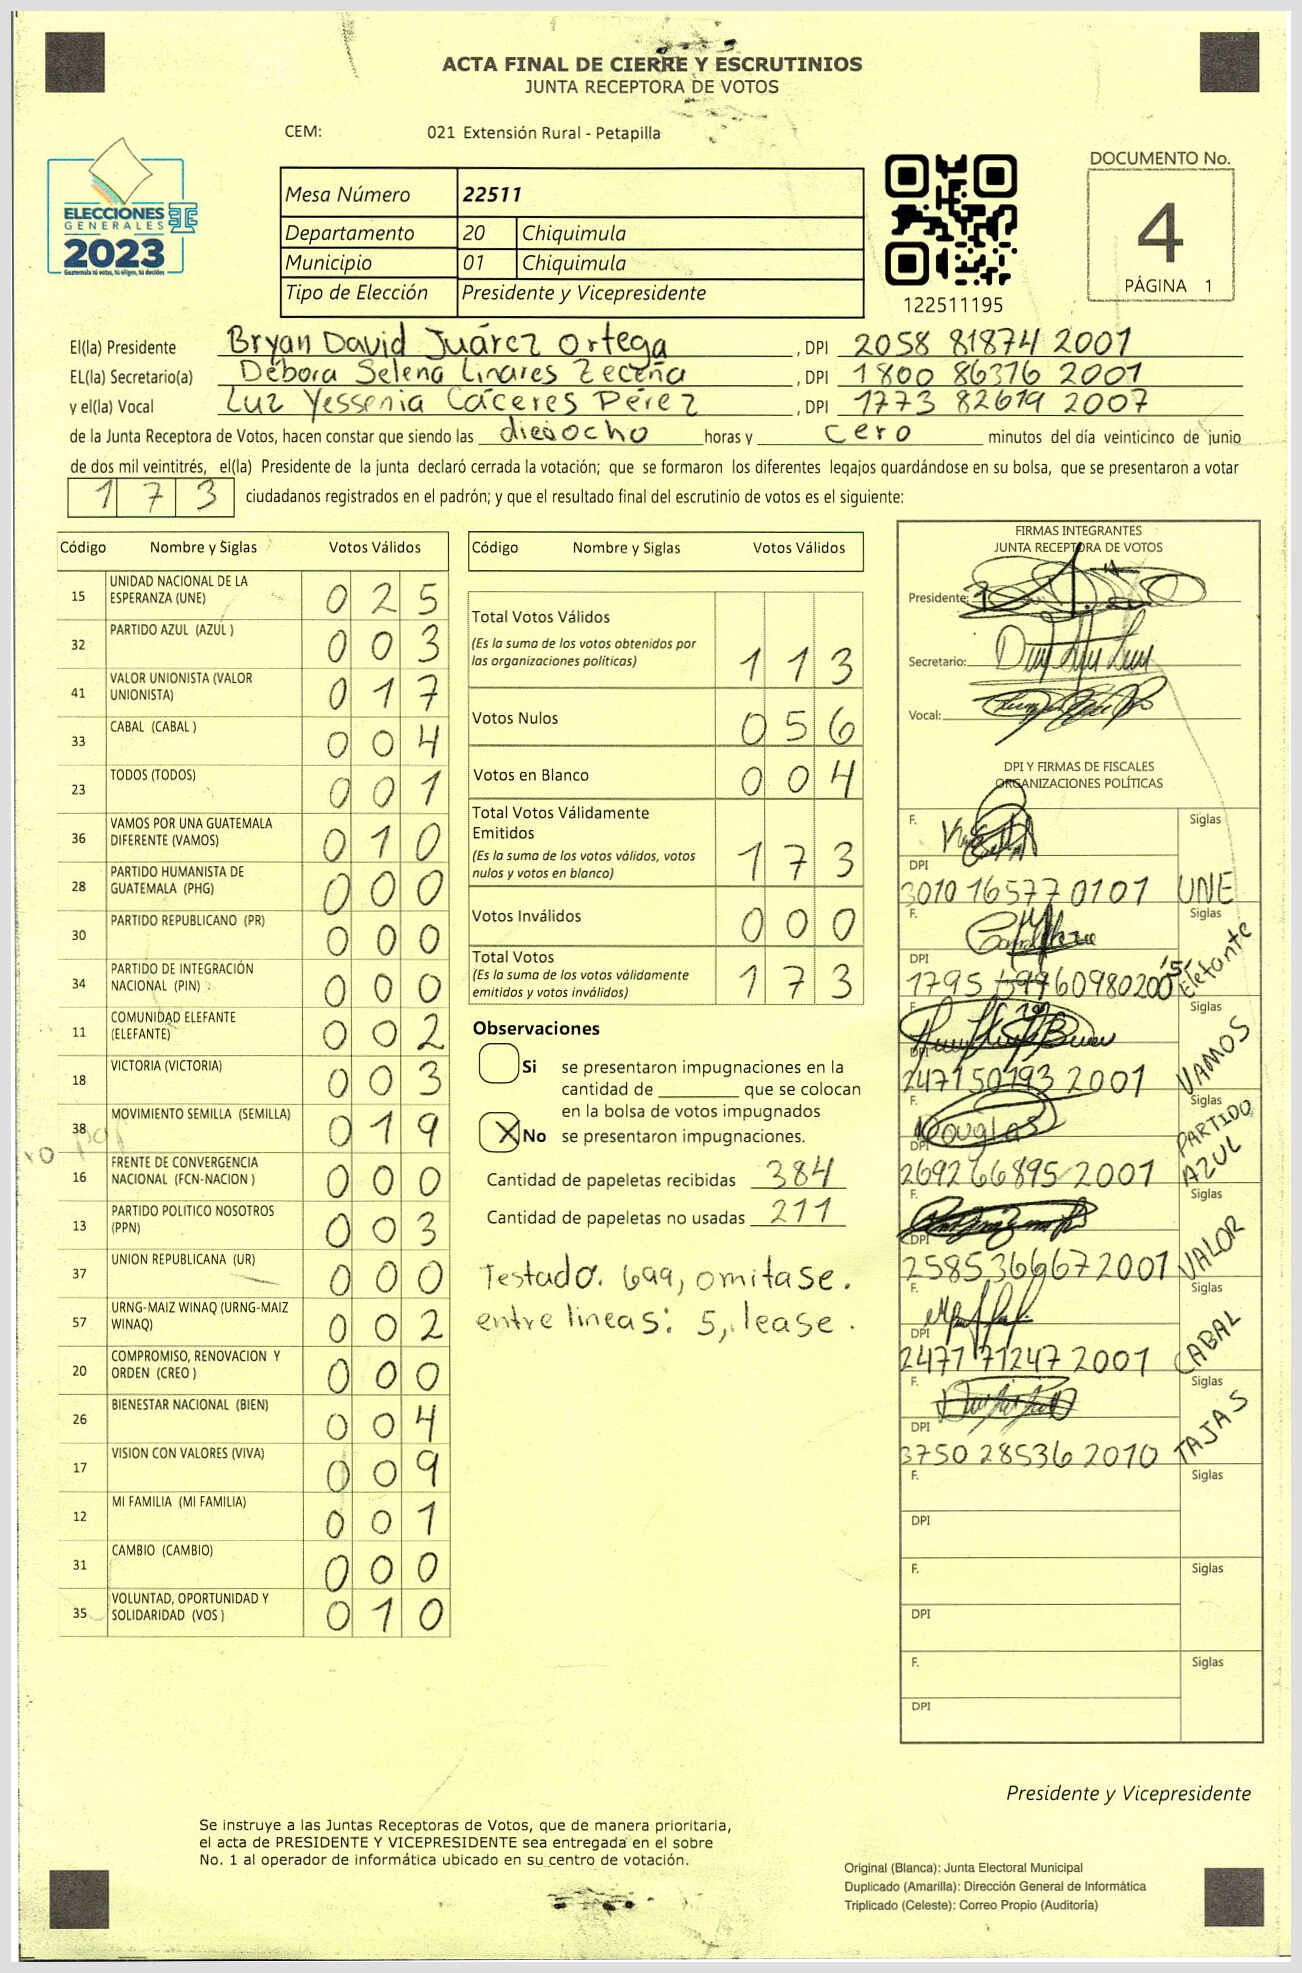 ACTA FINAL DE CIERRE Y ESCRUTINIOS
JUNTA RECEPTORA DE VOTOS
CEM: 021 Extensión Rural - Petapilla
ELECCIONES
GENERALES
2023
Guatemala tú votas, tú eliges, tú decides
Mesa Número 22511
Departamento 20 Chiquimula
Municipio 01 Chiquimula
Tipo de Elección Presidente y Vicepresidente
122511195
DOCUMENTO No.
4
PÁGINA 1
El(la) Presidente Bryan David Juárez Ortega, DPI 2058 81874 2001
EL(la) Secretario(a) Débora Selena Linares Zeceña, DPI 1800 86376 2001
y el(la) Vocal Luz Yessenia Cáceres Pérez, DPI 1773 82619 2007
de la Junta Receptora de Votos, hacen constar que siendo las dieciocho horas y cero minutos del día veinticinco de junio
de dos mil veintitrés, el(la) Presidente de la junta declaró cerrada la votación; que se formaron los diferentes legajos guardándose en su bolsa, que se presentaron a votar
173 ciudadanos registrados en el padrón; y que el resultado final del escrutinio de votos es el siguiente:
Código Nombre y Siglas Votos Válidos
15 UNIDAD NACIONAL DE LA ESPERANZA (UNE) 025
32 PARTIDO AZUL (AZUL ) 003
41 VALOR UNIONISTA (VALOR UNIONISTA) 017
33 CABAL (CABAL ) 004
23 TODOS (TODOS) 001
36 VAMOS POR UNA GUATEMALA DIFERENTE (VAMOS) 010
28 PARTIDO HUMANISTA DE GUATEMALA (PHG) 000
30 PARTIDO REPUBLICANO (PR) 000
34 PARTIDO DE INTEGRACIÓN NACIONAL (PIN) 000
11 COMUNIDAD ELEFANTE (ELEFANTE) 002
18 VICTORIA (VICTORIA) 003
38 MOVIMIENTO SEMILLA (SEMILLA) 019
16 FRENTE DE CONVERGENCIA NACIONAL (FCN-NACION ) 000
13 PARTIDO POLITICO NOSOTROS (PPN) 003
37 UNION REPUBLICANA (UR) 000
57 URNG-MAIZ WINAQ (URNG-MAIZ WINAQ) 002
20 COMPROMISO, RENOVACION Y ORDEN (CREO ) 000
26 BIENESTAR NACIONAL (BIEN) 004
17 VISION CON VALORES (VIVA) 009
12 MI FAMILIA (MI FAMILIA) 001
31 CAMBIO (CAMBIO) 000
35 VOLUNTAD, OPORTUNIDAD Y SOLIDARIDAD (VOS ) 010
Código Nombre y Siglas Votos Válidos
Total Votos Válidos
(Es la suma de los votos obtenidos por
las organizaciones políticas) 113
Votos Nulos 056
Votos en Blanco 004
Total Votos Válidamente
Emitidos
(Es la suma de los votos válidos, votos
nulos y votos en blanco) 173
Votos Inválidos 000
Total Votos
(Es la suma de los votos válidamente
emitidos y votos inválidos) 173
Observaciones
Si se presentaron impugnaciones en la
cantidad de ________ que se colocan
en la bolsa de votos impugnados
X No se presentaron impugnaciones.
Cantidad de papeletas recibidas 384
Cantidad de papeletas no usadas 211
Testado. 699, omitase.
entre lineas: 5, lease.
FIRMAS INTEGRANTES
JUNTA RECEPTORA DE VOTOS
Presidente:
Secretario:
Vocal:
DPI Y FIRMAS DE FISCALES
ORGANIZACIONES POLÍTICAS
F. Siglas
DPI
3010 16577 0101 UNE
F. Siglas
DPI
Elefante
F. Siglas
DPI
247150193 2001 VAMOS
F. Douglas Siglas
DPI
269266895 2001 PARTIDO AZUL
F. Siglas
DPI
258536667 2001 VALOR
F. Siglas
DPI
2471 71247 2001 CABAL
F. Siglas
DPI
3750 28536 2010 TAJAS
F. Siglas
DPI
F. Siglas
DPI
F. Siglas
DPI
Presidente y Vicepresidente
Se instruye a las Juntas Receptoras de Votos, que de manera prioritaria,
el acta de PRESIDENTE Y VICEPRESIDENTE sea entregada en el sobre
No. 1 al operador de informática ubicado en su centro de votación.
Original (Blanca): Junta Electoral Municipal
Duplicado (Amarilla): Dirección General de Informática
Triplicado (Celeste): Correo Propio (Auditoría)